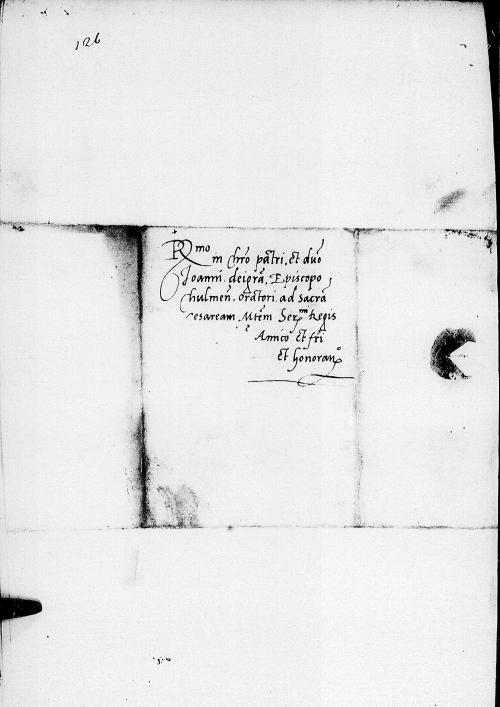 126
+
R.mo in chro patri, et dno
Joanni. dei gra, Episcopo
Chulmen. oratori. ad Sacrã
cesaream. Mtem Ser.mi Regis
Amico et fri
et honoran.o